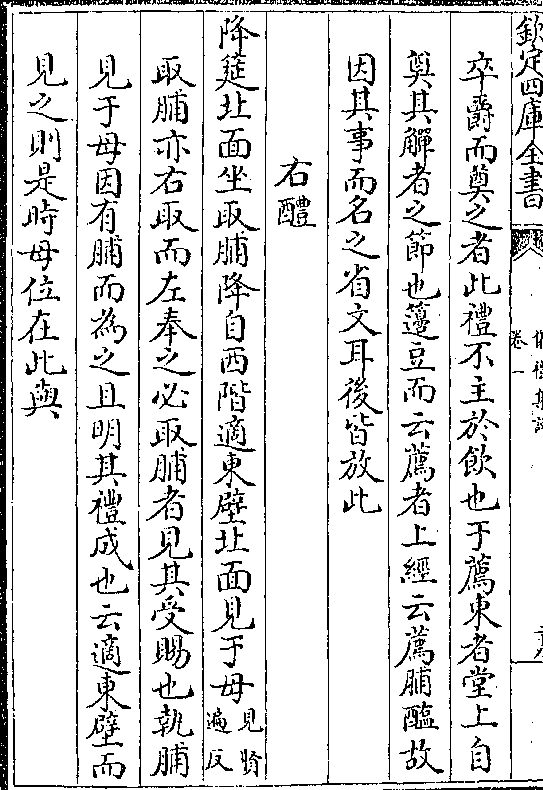 欽定四庫全書
卷一
卒爵而奠之者此禮不主於飲也于薦東者堂上自
奠其觶者之節也籩豆而云薦者上經云薦脯醢故
因其事而名之省文耳後皆放此
右醴
降筵北面坐取脯降自西階適東壁北面見于母見賢遍反
取脯亦右取而左奉之必取脯者見其受賜也執脯
見于母因有脯而為之且明其禮成也云適東壁而
見之則是時母位在此與